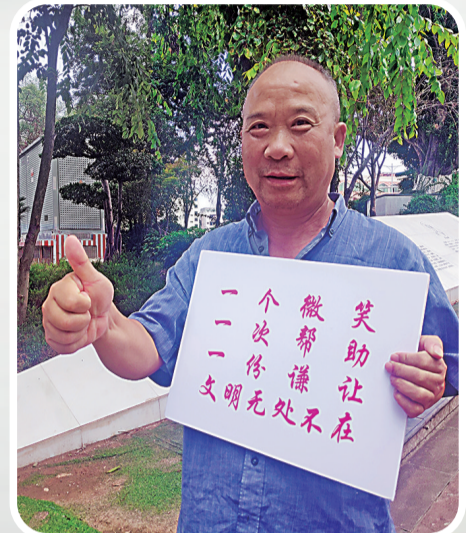 一个微笑
一次帮助
一份谦让
文明无处不在